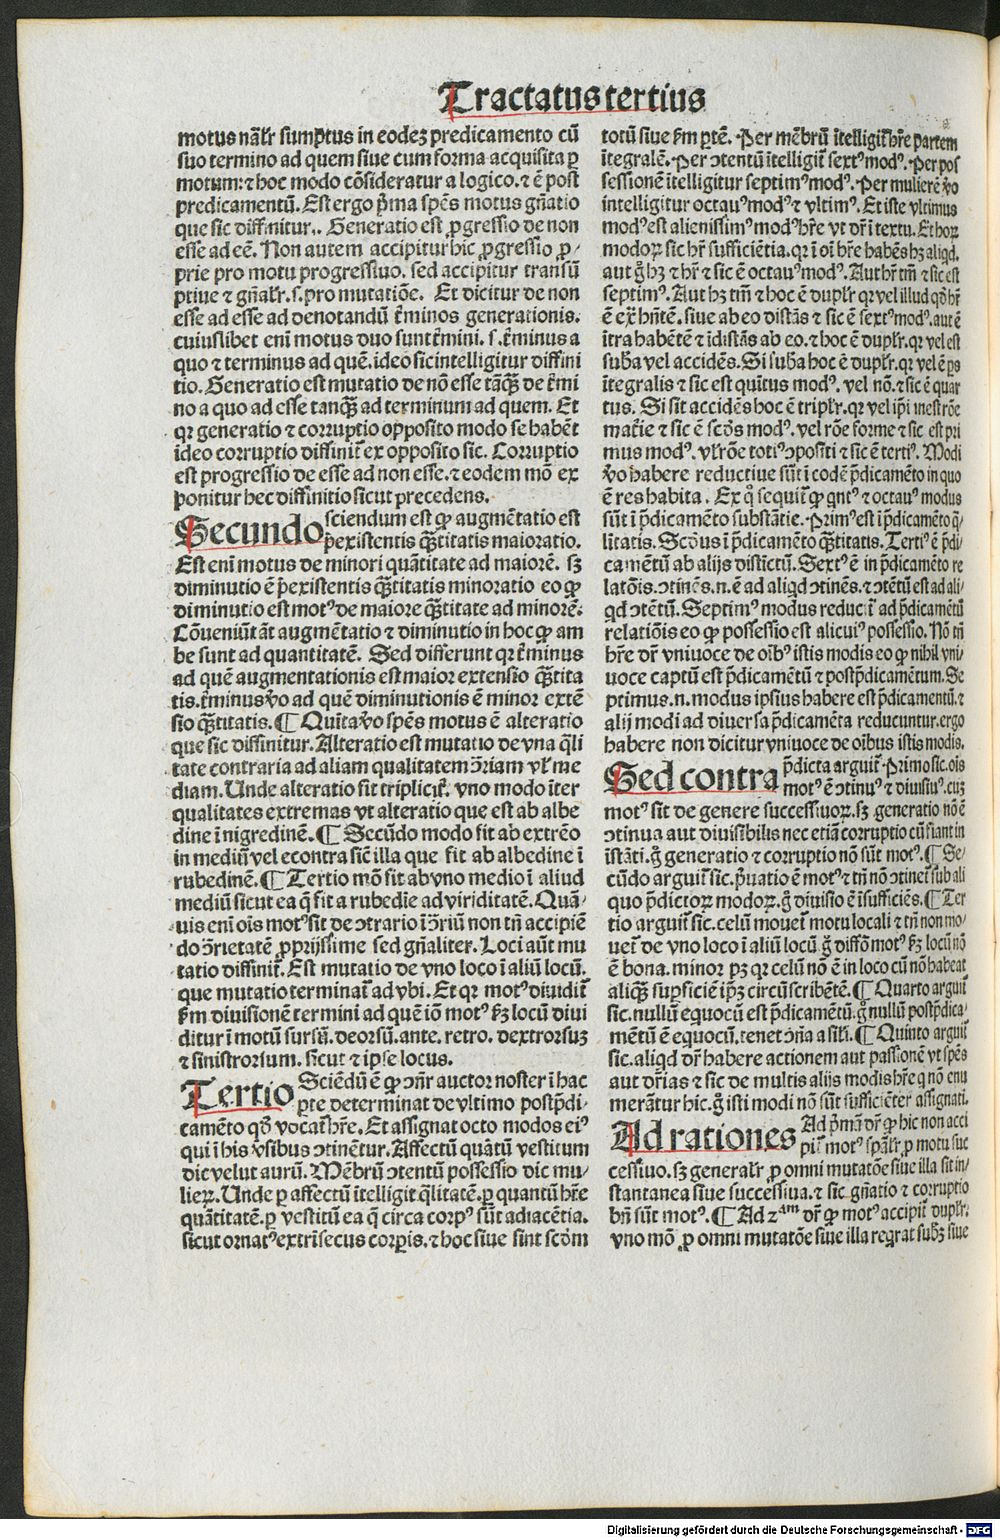 Tractatus tertius
motus nãlr̃ sumptus in eodeꝫ predicamento cũ
suo termino ad quem siue cum forma acquisita ꝑ
motum: ⁊ hoc modo cõsideratur a logico. ⁊ ẽ post
predicamentũ. Est ergo p̃ma spẽs motus gñatio
que sic diffinitur.. Generatio est ꝓgressio de non
esse ad eẽ. Non autem accipitur hic ꝓgressio ꝓ/
prie pro motu progressiuo. sed accipitur transũ
ptiue ⁊ gñalr̃. s. pro mutatiõe. Et dicitur de non
esse ad esse ad denotandũ t̃minos generationis.
cuiuslibet eni motus duo sunt t̃mini. s. t̃minus a
quo ⁊ terminus ad quẽ. ideo sic intelligitur diffini
tio. Generatio est mutatio de nõ esse tãꝗ̃ de t̃mi
no a quo ad esse tanꝗ̃ ad terminum ad quem. Et
qꝛ generatio ⁊ corruptio opposito modo se habẽt
ideo corruptio diffinit̃ ex opposito sic. Corruptio
est progressio de esse ad non esse. ⁊ eodem mõ ex
ponitur hec diffinitio sicut precedens.
Secundo sciendum est ꝙ augmẽtatio est
p̃existentis ꝗ̃titatis maioratio.
Est eni motus de minori quãtitate ad maiorẽ. sꝫ
diminutio ẽ p̃existentis ꝗ̃titatis minoratio eo ꝙ
diminutio est motꝰ de maiore ꝗ̃titate ad minorẽ.
Cõueniũt ãt augmẽtatio ⁊ diminutio in hoc ꝙ am
be sunt ad quantitatẽ. Sed differunt qꝛ t̃minus
ad quẽ augmentationis est maior extensio ꝗ̃tita
tis. t̃minus ṽo ad quẽ diminutionis ẽ minor extẽ
sio ꝗ̃titatis. ¶ Quĩta ṽo spẽs motus ẽ alteratio
que sic diffinitur. Alteratio est mutatio de vna q̃li
tate contraria ad aliam qualitatem ↄ̃riam vl̃ me
diam. Unde alteratio fit triplicit̃. vno modo ĩter
qualitates extremas vt alteratio que est ab albe
dine ĩ nigredinẽ. ¶ Secũdo modo fit ab extrẽo
in mediũ vel econtra sic̃ illa que fit ab albedine ĩ
rubedinẽ. ¶ Tertio mõ fit ab vno medio ĩ aliud
mediũ sicut ea q̃ fit a rubedie ad viriditatẽ. Quã/
uis eni oĩs motꝰ sit de ↄtrario ĩ ↄ̃riũ non tñ accipiẽ
do ↄ̃rietatẽ ꝓprijssime sed gñaliter. Loci aũt mu
tatio diffinit̃. Est mutatio de vno loco ĩ aliũ locũ.
que mutatio terminat̃ ad vbi. Et qꝛ motꝰ diuidit̃
ẜm diuisionẽ termini ad quẽ iõ motꝰ ẜꝫ locũ diui
ditur ĩ motũ sursũ. deorsũ. ante. retro. dextrorsuꝫ
⁊ sinistrorsum. sicut ⁊ ipse locus.
Tertio Sciẽdũ ẽ ꝙ ↄñr auctor noster ĩ hac
ꝑte determinat de vltimo postp̃di/
camẽto qð vocat̃ hr̃e. Et assignat octo modos eiꝰ
qui ĩ his ṽsibus ↄtinẽtur. Affectũ quãtũ vestitum
dic velut aurũ. Mẽbrũ ↄtentũ possessio dic mu/
lieꝝ. Unde ꝑ affectũ ĩtelligit q̃litatẽ. ꝑ quantũ hr̃e
quãtitatẽ. ꝑ vestitũ ea q̃ circa corpꝰ sũt adiacẽtia.
sicut ornatꝰ extrĩsecus corꝑis. ⁊ hoc siue sint scðm
totũ siue ẜm ꝑtẽ. Per mẽbrũ ĩtelligit̃ hr̃e partem
ĩtegralẽ. Per ↄtentũ ĩtelligit̃ sextꝰ modꝰ. Per pos
sessionẽ ĩtelligitur septimꝰ modꝰ. Per mulierẽ ṽo
intelligitur octauꝰ modꝰ ⁊ vltimꝰ. Et iste vltimus
modꝰ est alienissimꝰ modꝰ hr̃e vt dr̃ ĩ textu. Et hoꝝ
modoꝝ sic hr̃ sufficiẽtia. qꝛ ĩ oĩ hr̃e habẽs hꝫ aliqd.
aut g̃ hꝫ ⁊ hr̃ ⁊ sic ẽ octauꝰ modꝰ. Aut hr̃ tm̃ ⁊ sic est
septimꝰ. Aut hꝫ tm̃ ⁊ hoc ẽ duplr̃ qꝛ vel illud qð hr̃
ẽ ex̃ hñtẽ. siue ab eo distãs ⁊ sic ẽ sextꝰ modꝰ. aut ẽ
ĩtra habẽtẽ ⁊ ĩdistãs ab eo. ⁊ hoc ẽ duplr̃. qꝛ vel est
suba vel accidẽs. Si suba hoc ẽ duplr̃. qꝛ vel ẽ ps
ĩtegralis ⁊ sic est quĩtus modꝰ. vel nõ. ⁊ sic ẽ quar
tus. Si sit accidẽs hoc ẽ triplr̃. qꝛ vel ip̃i inest rõe
mat̃ie ⁊ sic ẽ scðs modꝰ. vel rõe forme ⁊ sic est pri
mus modꝰ. vl̃ rõe totiꝰ ↄpositi ⁊ sic ẽ tertꝰ. Modi
ṽo habere reductiue sũt ĩ eodẽ p̃dicamẽto in quo
ẽ res habita. Ex quo sequit̃ ꝙ qntꝰ ⁊ octauꝰ modus
sũt ĩ p̃dicamẽto substãtie. Primꝰ est ĩ p̃dicamẽto q̃/
litatis. Scðus ĩ p̃dicamẽto ꝗ̃titatis. Tertiꝰ ẽ p̃di/
camẽtũ ab alijs distictũ. Sextꝰ ẽ in p̃dicamẽto re
latõis. ↄtinẽs. n. ẽ ad aliqd ↄtinẽs. ⁊ ↄtẽtũ est ad ali/
qd ↄtẽtũ. Septimꝰ modus reducit̃ ad p̃dicamẽtũ
relatiõis eo ꝙ possessio est alicuiꝰ possessio. Nõ tñ
hr̃e dr̃ vniuoce de oĩbꝰ istis modis eo ꝙ nihil vni/
uoce captũ est p̃dicamẽtũ ⁊ postp̃dicamẽtum. Se
ptimus. n. modus ipsius habere est p̃dicamentũ. ⁊
alij modi ad diuersa p̃dicamẽta reducuntur. ergo
habere non dicitur vniuoce de oĩbus istis modis.
Sed contra p̃dicta arguit̃. Primo sic. oĩs
motꝰ ẽ ↄtinuꝰ ⁊ diuisiuꝰ. cuꝫ
motꝰ sit de genere successiuoꝝ. sꝫ generatio nõ ẽ
ↄtinua aut diuisibilis nec etiã corruptio cũ fiant in
ĩstãti. g̃ generatio ⁊ corruptio nõ sũt motꝰ. ¶ Se/
cũdo arguit̃ sic. p̃uatio ẽ motꝰ ⁊ tñ nõ ↄtinet̃ sub ali
quo p̃dictoꝝ modoꝝ. g̃ diuisio ẽ ĩsufficiẽs. ¶ Ter
tio arguit̃ sic. celũ mouet̃ motu locali ⁊ tñ non mo/
uet̃ de vno loco ĩ aliũ locũ g̃ diffõ motꝰ ẜꝫ locũ nõ
ẽ bona. minor pꝫ qꝛ celũ nõ ẽ in loco cũ nõ habeat
aliquã suꝑficiẽ ip̃ꝫ circũscribẽtẽ. ¶ Quarto arguit̃
sic. nullũ equocũ est p̃dicamẽtũ. g̃ nullũ postp̃dica/
mẽtũ ẽ equocũ. tenet ↄña a sil̃i. ¶ Quinto arguit̃
sic. aliqd dr̃ habere actionem aut passionẽ vt spẽs
aut dr̃ias ⁊ sic de multis alijs modis hr̃e q̃ nõ enu
merãtur hic. g̃ isti modi nõ sũt sufficiẽter assignati.
Ad rationes Ad p̃mã dr̃ ꝙ hic non acci
pit̃ motꝰ spãlr̃. ꝓ motu suc
cessiuo. sꝫ generalr̃ ꝓ omni mutatõe siue illa sit in/
stantanea siue successiua. ⁊ sic gñatio ⁊ corruptio
bñ sũt motꝰ. ¶ Ad 2am dr̃ ꝙ motꝰ accipit̃ duplr̃.
vno mõ ꝓ omni mutatõe siue illa reqrat subꝫ siue
Digitalisierung gefördert durch die Deutsche Forschungsgemeinschaft - DFG